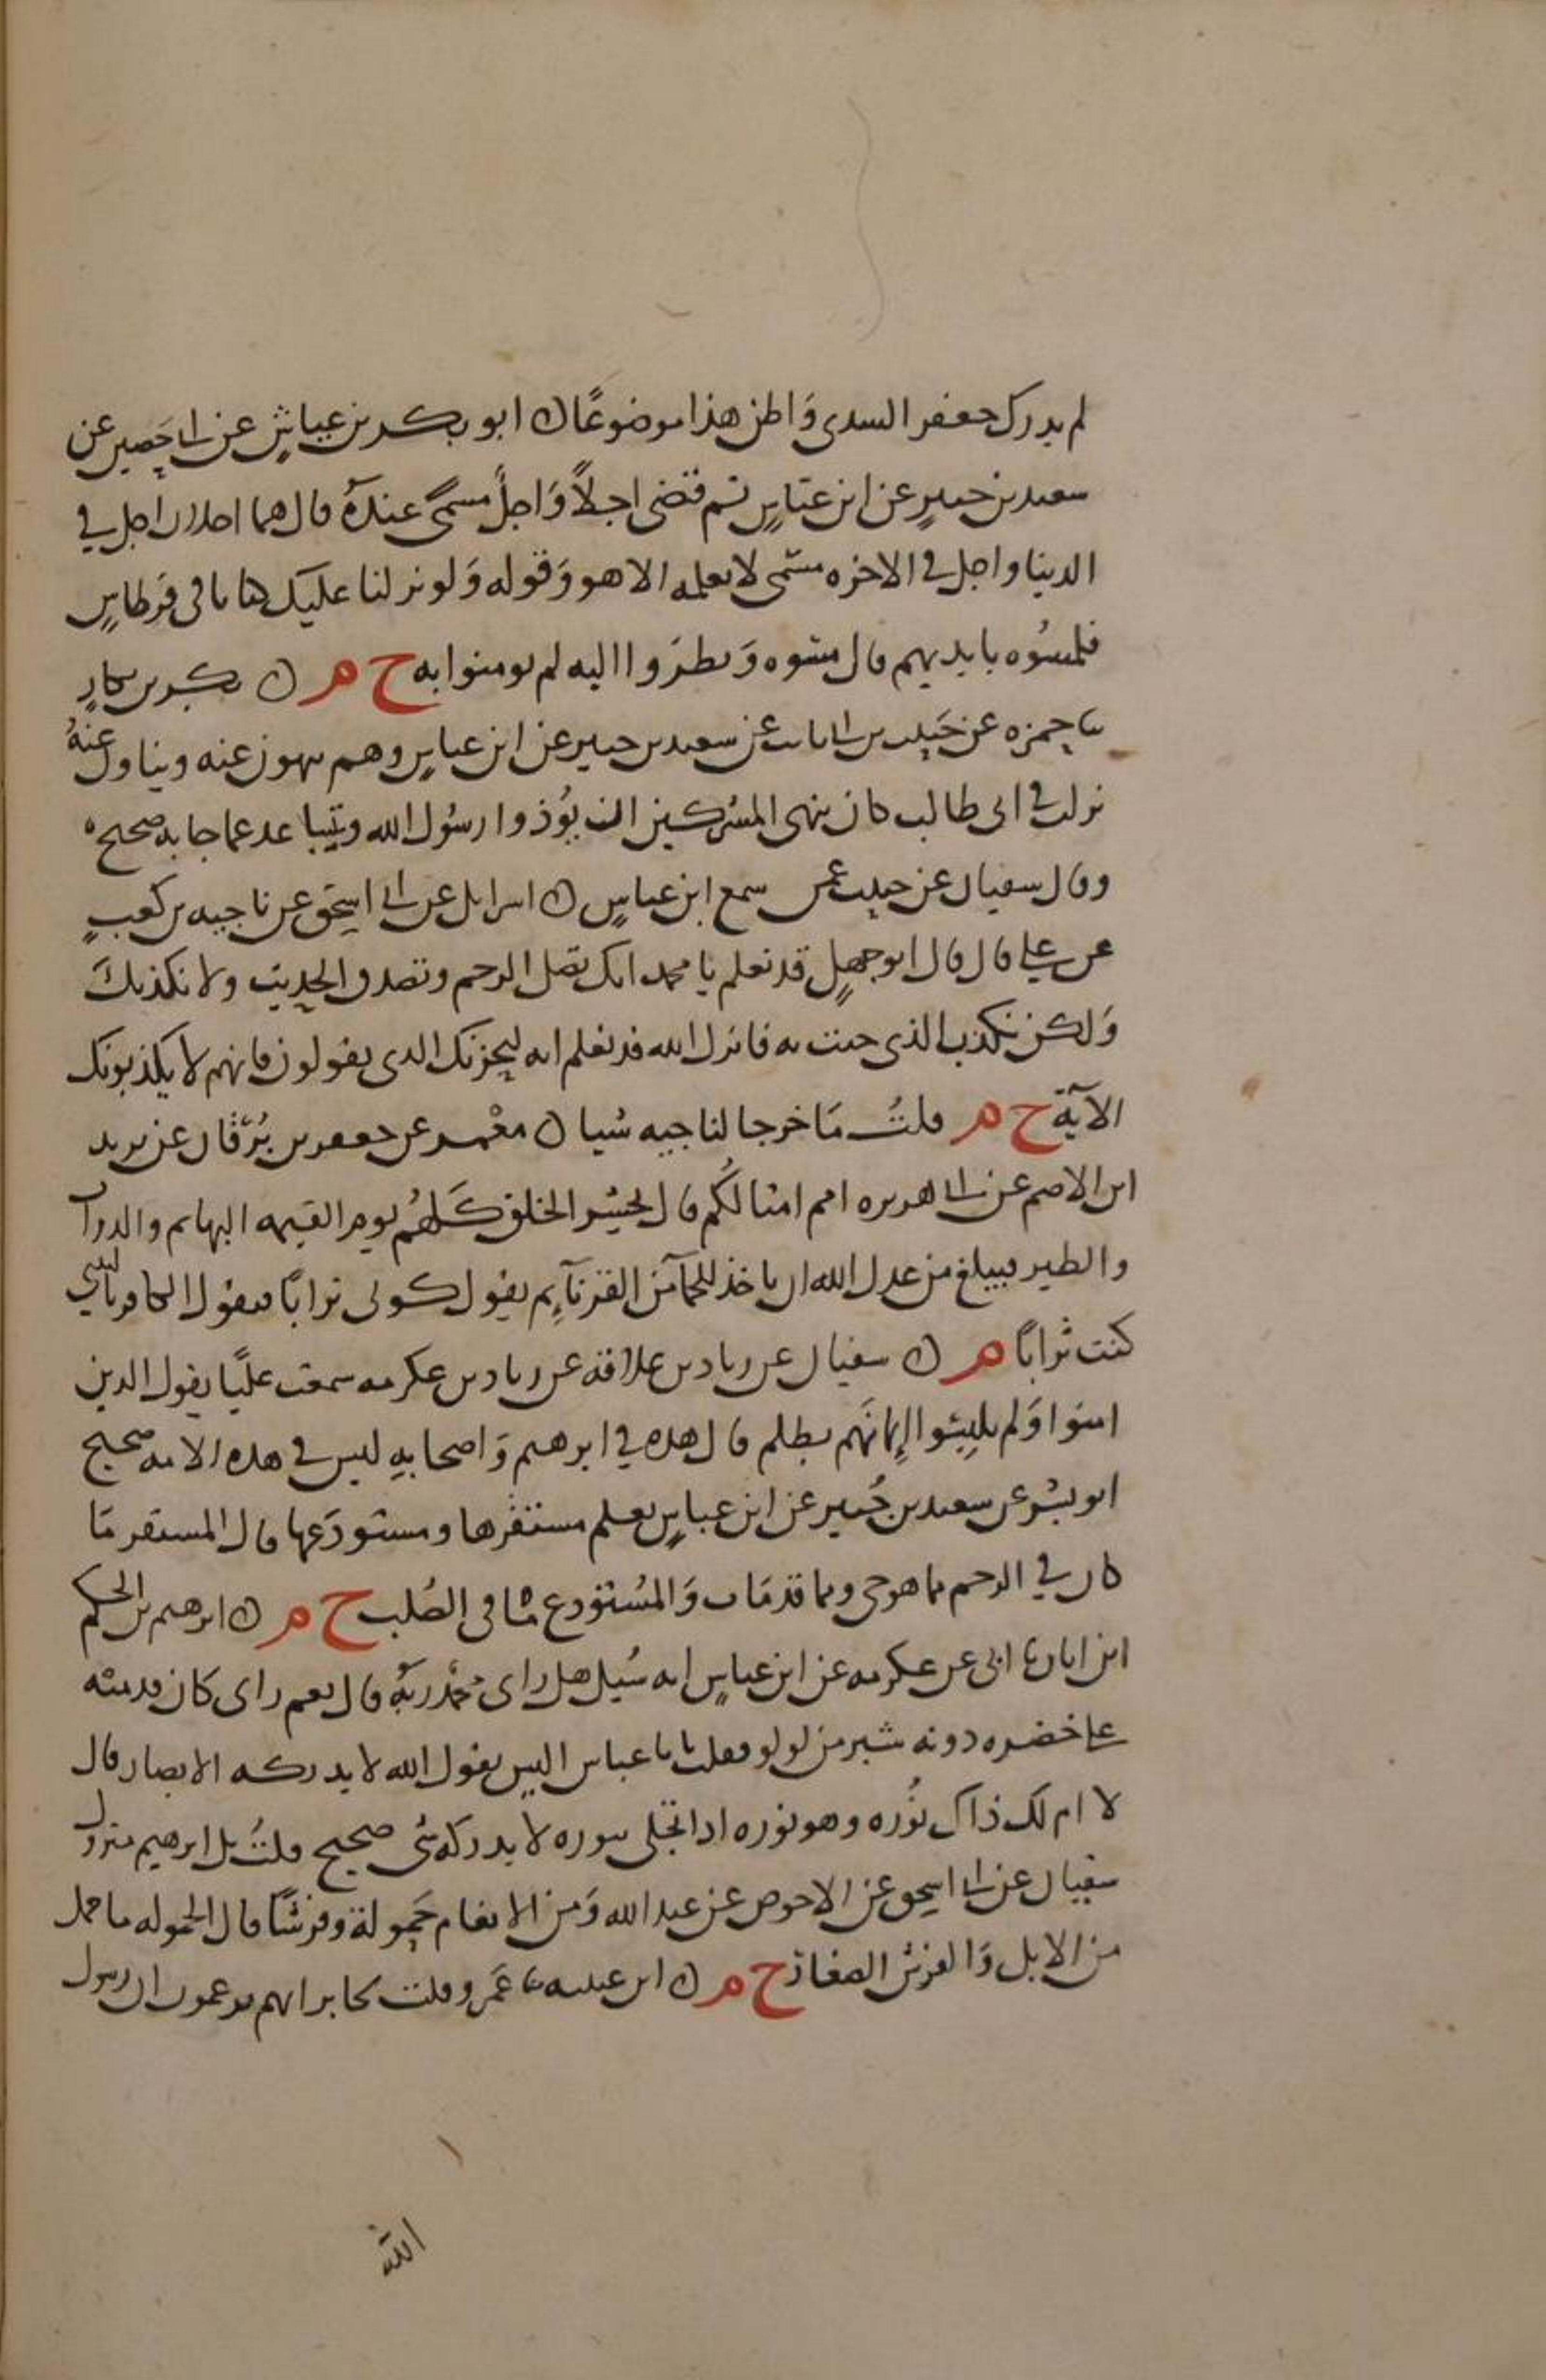 لم يدرك جعفر السدى وَاظن هذا موضوعًا ن ابو بكر بن عياشٍ عن ابى حَصِير عن
سعيد بن جبيرٍ عن ابن عبّاسٍ ثم قضى اجلاً وَاجلٌ مسمًى عندَهُ قال هما اجلان اجل في
الدينا واجل في الاخره مسمّى لا يعلمه الا هو وَقوله وَلو نزلنا عليك كتابا فى قرطاسٍ
فلمسُوه بايديهم قال مسّوه وَنظرَوا اليه لم يومنوا به ح م ن بكر بن بكارٍ
نا حمزه عن حَبيب بن ابى ثابت عن سعيد بن جبير عن ابن عباسٍ وهم ينهون عنه ويناون عنهُ
نزلت في ابى طالب كان ينهى المشركين ان يؤذوا رسُول الله ويتباعد عما جا به صحيح ه
وقال سفيان عن حبيب عمن سمع ابن عباسٍ ن اسرايل عن ابى اسحق عن ناجيه بن كعبٍ
عن علي قال قال ابو جهلٍ قد نعلم يا محمد انك تصل الرحم وتصدق الحديث ولا نكذبكَ
وَلكن نكذب الذى جئت به فانزل الله قد نعلم انه ليحزنك الذى يقولون فانهم لا يكذبونك
الآية ح م قلتُ مَا خرجا لناجيه شيا ن معْمر عن جعفر بن بُرْقان عن يزيد
ابن الاصم عن ابى هريره امم امثالكُم قال يحشر الخلق كلهُم يوم القيمه البهايم والدواب
والطير فيبلغ من عدل الله ان ياخذ للجمآ من القرنآءِ ثم يقول كونى ترابًا فيقول الكافر يا ليتني
كنت تُرابًا م ن سفيان عن زياد بن علاقه عن زياد بن عكرمه سمعت عليًا يقول الذين
امنوا وَلم يلبِسُوا اِيمانَهم بظلم قال هذه في ابرهيم وَاصحابهِ ليس في هذه الامه صحيح
ابو بشر عن سعيد بن جُبير عن ابن عباسٍ يعلم مستقرها ومستودَعها قال المستقر مَا
كان في الرحم مما هو حى ومما قد مَات وَالمُستودع مَا فى الصُلب ح م ن ابرهيم بن الحكم
ابن ابان نا ابى عن عكرمه عن ابن عباسٍ انه سُيل هل راى محَمّد ربَّهُ قال نعم راى كان قدميه
على خضره دونه ستر من لولو فقلت يا با عباس اليس يقول الله لا يدركه الابصار قال
لا ام لك ذاك نُوره وهو نوره اذا تجلى بنوره لا يدركه شى صحيح قلتُ بل ابرهيم متروك
سفيان عن ابى اسحق عن الاحوص عن عبد الله وَمن الانعام حَمولة وفرشًا قال الحموله ما حمل
من الابل وَالفرش الصغار ح م ن ابن عيينه نا عَمرو قلت لجابر انهم يزعمون ان رسول
الله